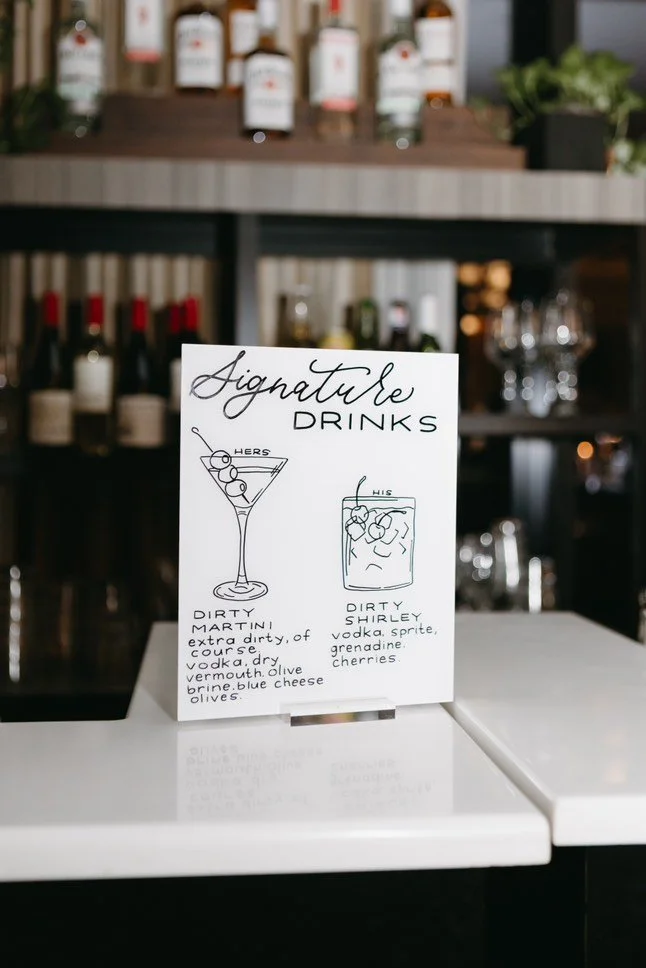 Signature
DRINKS
HERS
DIRTY
MARTINI
extra dirty, of
course.
vodka, dry
vermouth, olive
brine. blue cheese
olives.
HIS
DIRTY
SHIRLEY
vodka. sprite,
grenadine.
cherries.